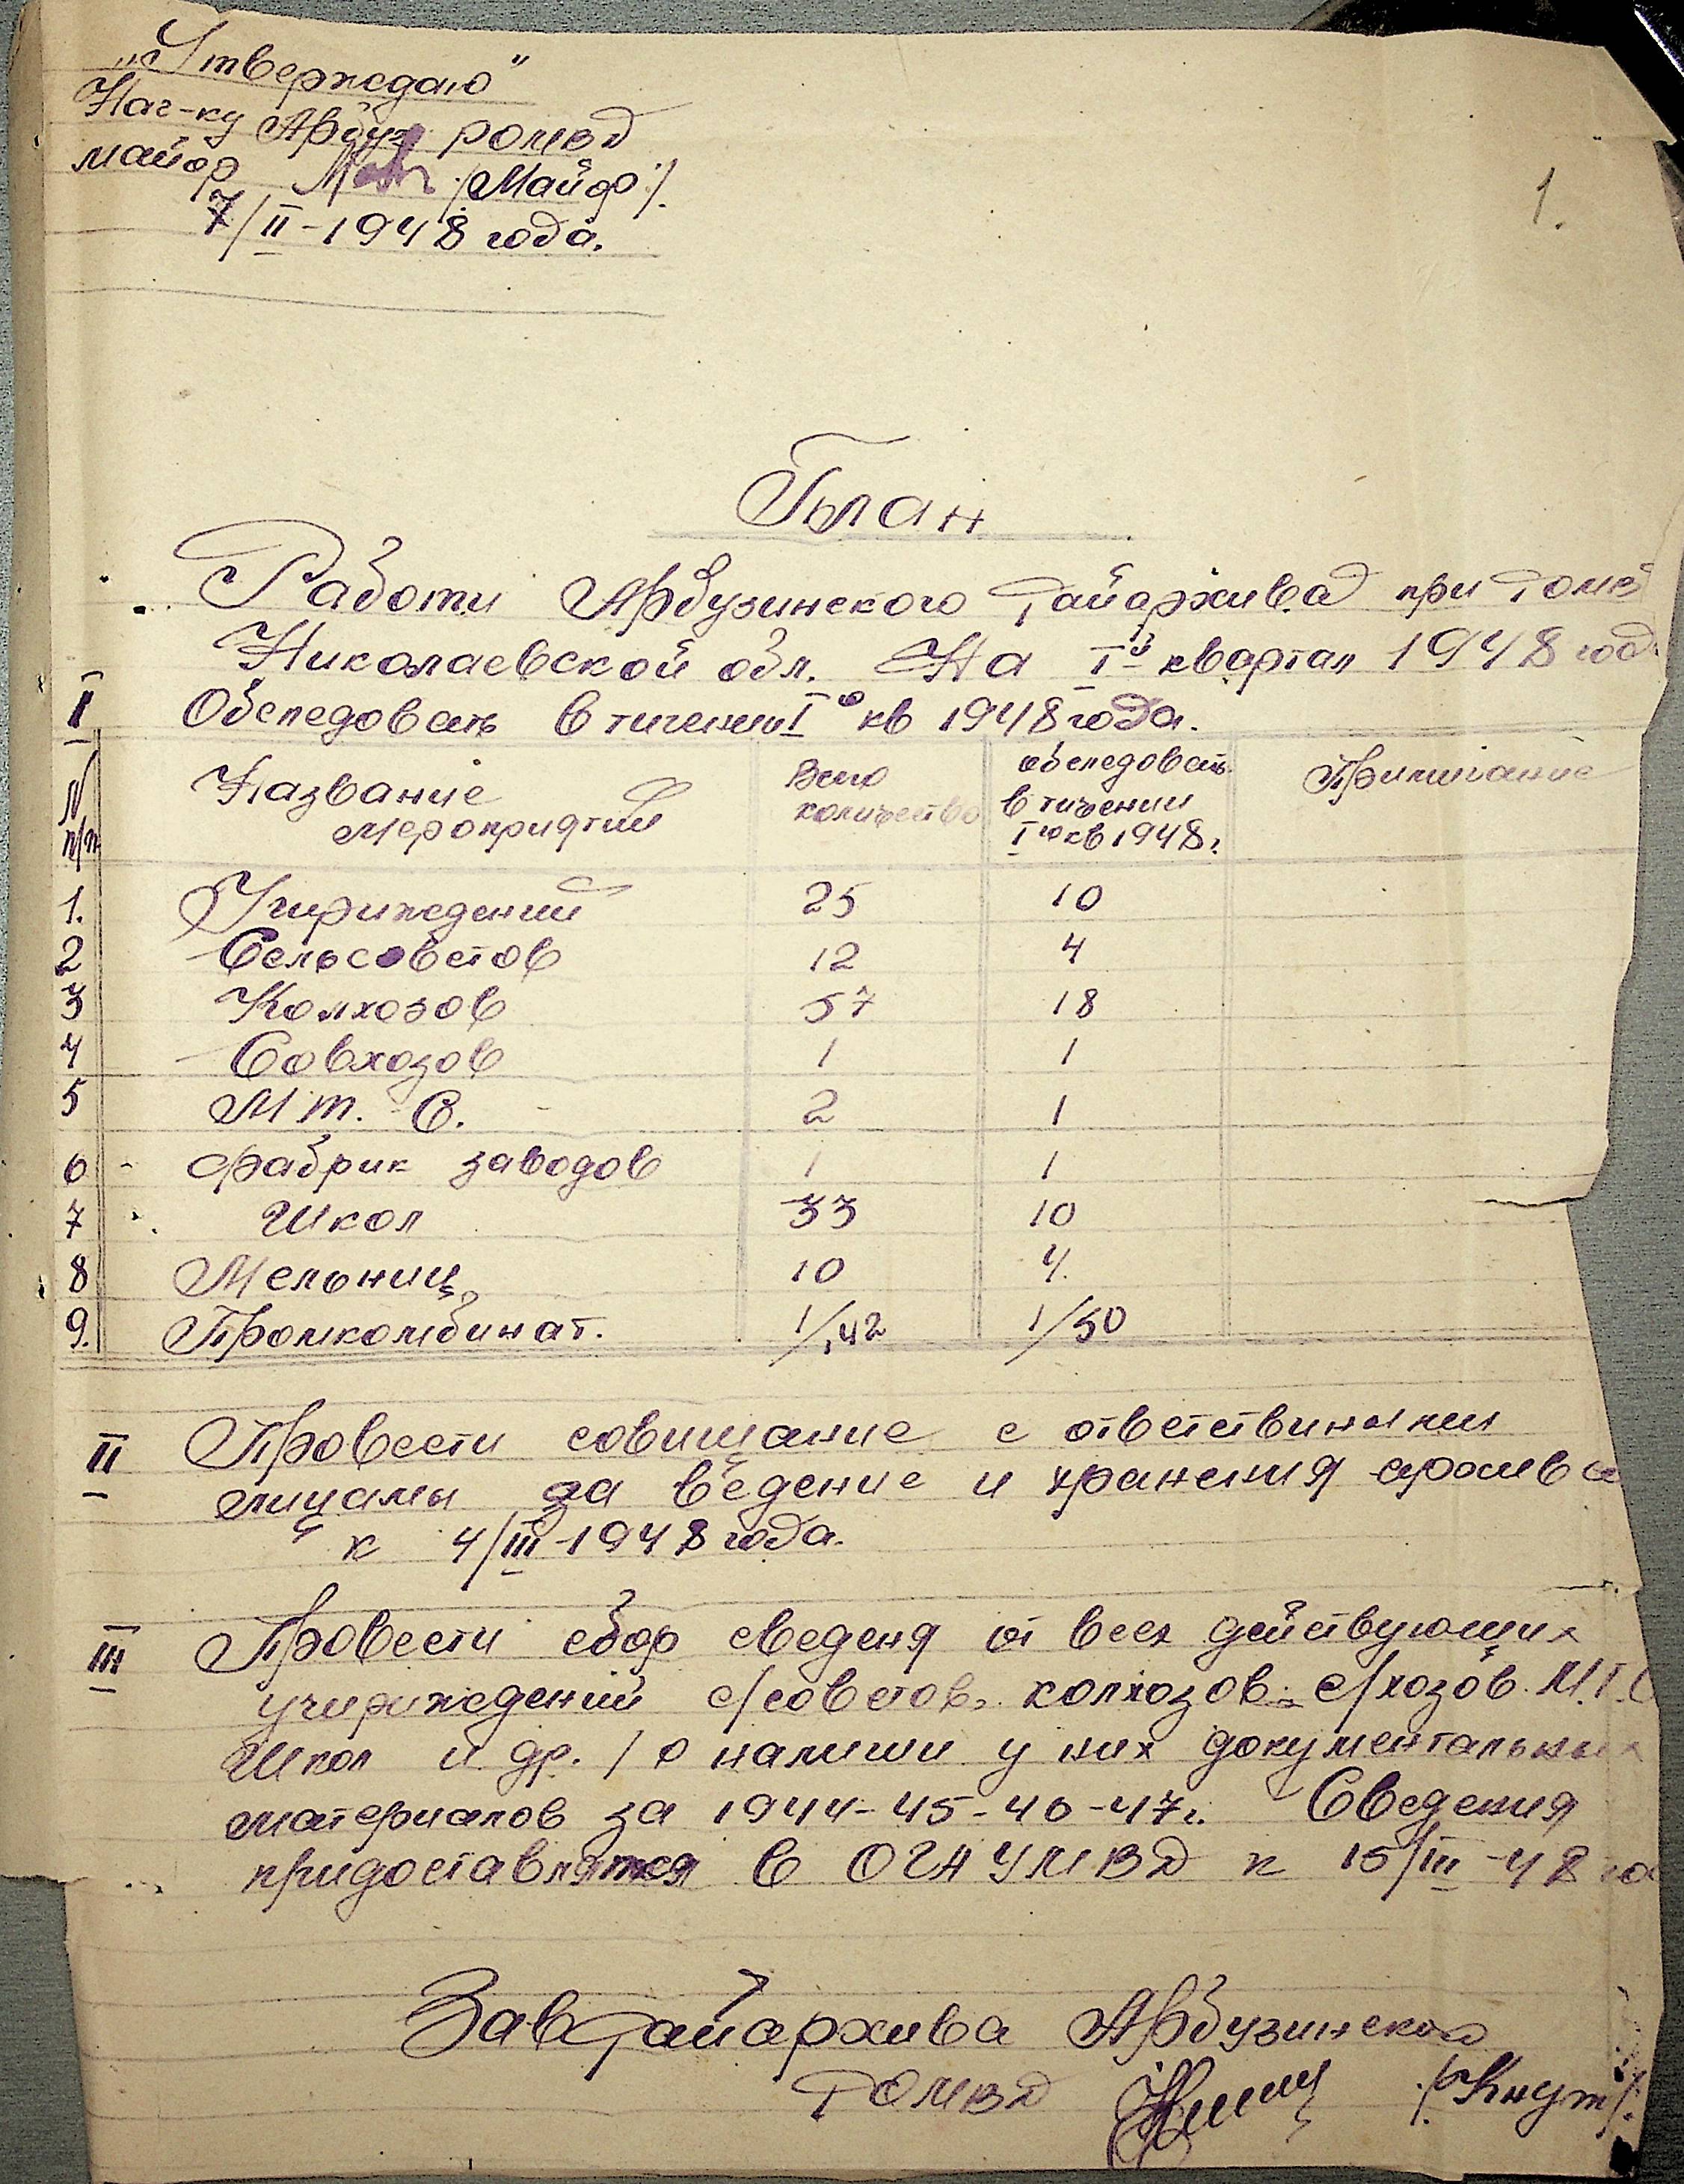 „Утверждаю"
Нач-ку Арбуз РОМВД
майор /Майор/.
7/II-1948 года.
1.
План
Работи Арбузинского Райархива при Ром
Николаевской обл. На Iй квартал 1948 год
I Обследовать в тичении Iо кв 1948 года.
N п/п Название мероприятий Всего количество обследовать в тичении Iго кв 1948г. Примичание
1. Учириждений 25 10
2 Сельсоветов 12 4
3 Колхозов 57 18
4 Совхозов 1 1
5 М т. С. 2 1
6 - Фабрик заводов 1 1
7 Школ 33 10
8 Мельниц 10 4.
9. Промкомбинат. 1/142 1/50
II Провести совищание с ответствиными
лицамы за ведение и хранения архива
к 4/III-1948 года.
III Провести сбор сведеня от всех действующих
учириждений с/советов, колхозов, с/хозов М.Т.С
Школ и др. / о наличии у них документальных
материалов за 1944-45-46-47г. Сведения
придоставлятся в ОГАУМВД к 15/III-48 го
Зав Райархива Арбузинского
РОМВД /Кнут/.